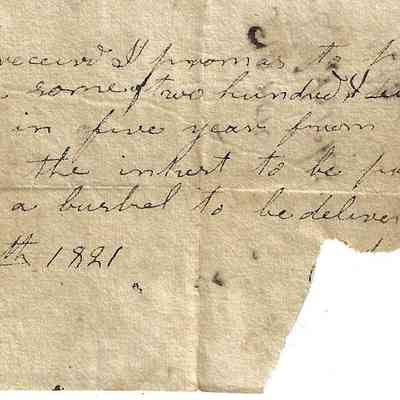 receivd I promas to p
some of two hundred &
in five year from
the intrest to be pa
a bushel to be deliver
th 1821